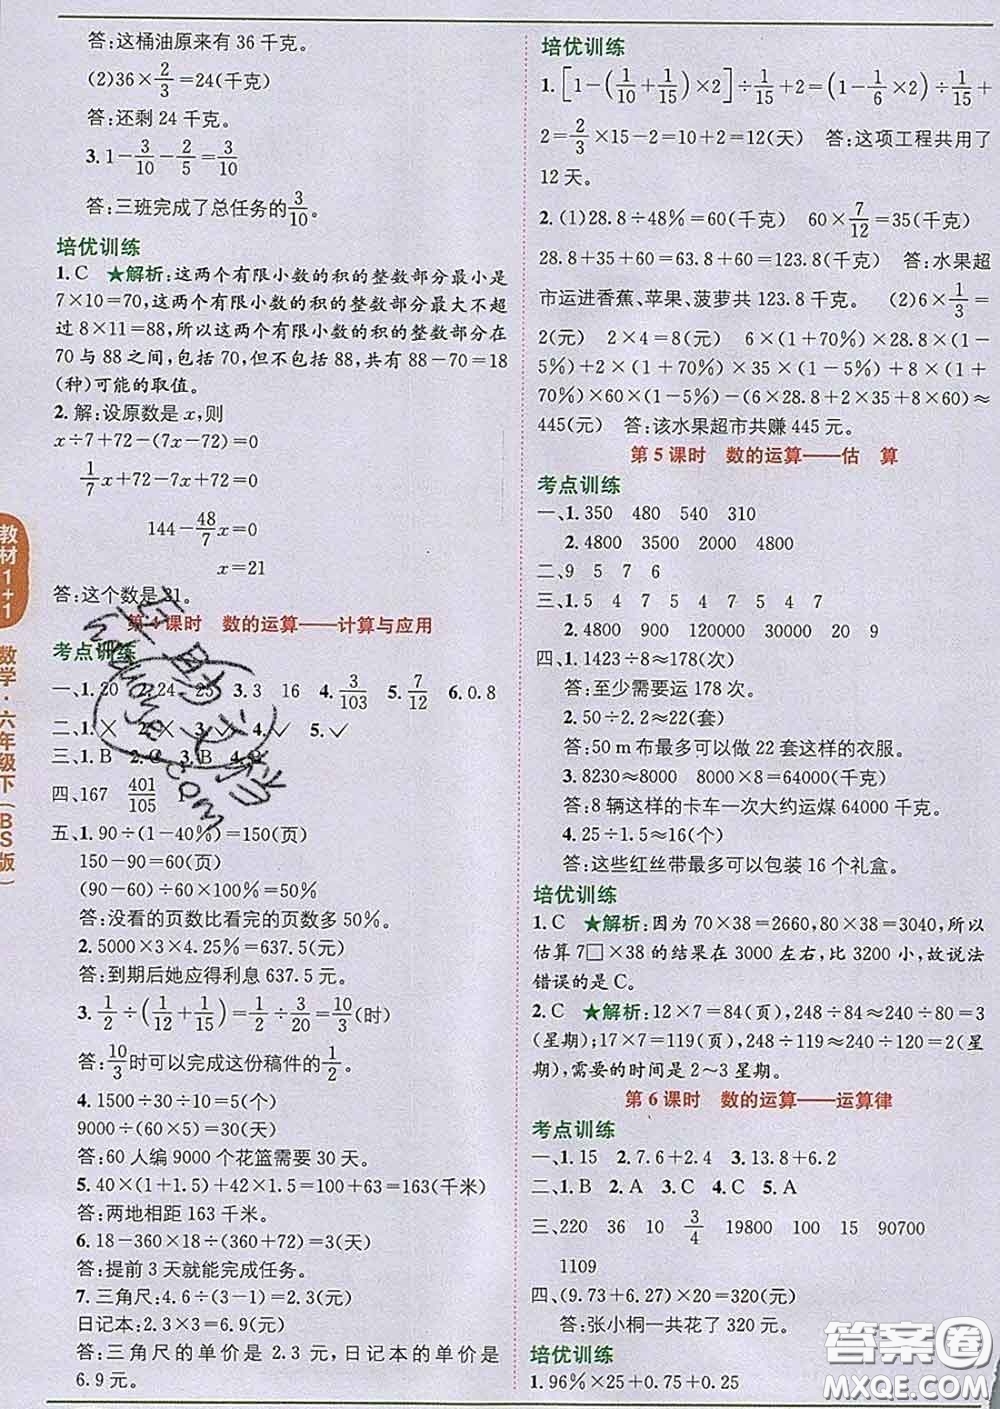 答:这桶油原来有 36 千克。
(2)36×2/3=24(千克)
答:还剩 24 千克。
3. 1−3/10−2/5=3/10
答:三班完成了总任务的3/10。
培优训练
1. C ★解析:这两个有限小数的积的整数部分最小是
7×10=70,这两个有限小数的积的整数部分最大不超
过 8×11=88,所以这两个有限小数的积的整数部分在
70 与 88 之间,包括 70,但不包括 88,共有 88−70=18
(种)可能的取值。
2. 解:设原数是 x,则
x÷7+72−(7x−72)=0
1/7x+72−7x+72=0
144−48/7x=0
x=21
答:这个数是 21。
第 4 课时 数的运算——计算与应用
考点训练
一、1. 20 2. 24 25 3. 3 16 4. 3/103 5. 7/12 6. 0.8
二、1. × 2. × 3. ✓ 4. ✓ 5. ✓
三、1. B 2. C 3. B
四、167 401/105 1
五、1. 90÷(1−40%)=150(页)
150−90=60(页)
(90−60)÷60×100%=50%
答:没看的页数比看完的页数多 50%。
2. 5000×3×4.25%=637.5(元)
答:到期后她应得利息 637.5 元。
3. 1/2÷(1/12+1/15)=1/2÷3/20=10/3(时)
答:10/3时可以完成这份稿件的1/2。
4. 1500÷30÷10=5(个)
9000÷(60×5)=30(天)
答:60 人编 9000 个花篮需要 30 天。
5. 40×(1+1.5)+42×1.5=100+63=163(千米)
答:两地相距 163 千米。
6. 18−360×18÷(360+72)=3(天)
答:提前 3 天就能完成任务。
7. 三角尺:4.6÷(3−1)=2.3(元)
日记本:2.3×3=6.9(元)
答:三角尺的单价是 2.3 元,日记本的单价是
6.9 元。
培优训练
1. [1−(1/10+1/15)×2]÷1/15+2=(1−1/6×2)÷1/15+
2=2/3×15−2=10+2=12(天) 答:这项工程共用了
12 天。
2. (1)28.8÷48%=60(千克) 60×7/12=35(千克)
28.8+35+60=63.8+60=123.8(千克) 答:水果超
市运进香蕉、苹果、菠萝共 123.8 千克。 (2)6×1/3=
2(元) 2×4=8(元) 6×(1+70%)×28.8×(1−
5%)+2×(1+70%)×35×(1−5%)+8×(1+
70%)×60×(1−5%)−(6×28.8+2×35+8×60)≈
445(元) 答:该水果超市共赚 445 元。
第 5 课时 数的运算——估 算
考点训练
一、1. 350 480 540 310
2. 4800 3500 2000 4800
二、9 5 7 6
三、1. 5 4 7 5 4 7 5 4 7
2. 4800 900 120000 30000 20 9
四、1. 1423÷8≈178(次)
答:至少需要运 178 次。
2. 50÷2.2≈22(套)
答:50 m 布最多可以做 22 套这样的衣服。
3. 8230≈8000 8000×8=64000(千克)
答:8 辆这样的卡车一次大约运煤 64000 千克。
4. 25÷1.5≈16(个)
答:这些红丝带最多可以包装 16 个礼盒。
培优训练
1. C ★解析:因为 70×38=2660,80×38=3040,所以
估算 7□×38 的结果在 3000 左右,比 3200 小,故说法
错误的是 C。
2. C ★解析:12×7=84(页),248÷84≈240÷80=3
(星期);17×7=119(页),248÷119≈240÷120=2(星
期),需要的时间是 2~3 星期。
第 6 课时 数的运算——运算律
考点训练
一、1. 15 2. 7.6+2.4 3. 13.8+6.2
二、1. B 2. A 3. C 4. C 5. A
三、220 36 10 3/4 19800 100 15 90700
1109
四、(9.73+6.27)×20=320(元)
答:张小桐一共花了 320 元。
培优训练
1. 96%×25+0.75+0.25
教材1+1
数学·六年级下(BS版)
答案圈
MXQE.COM